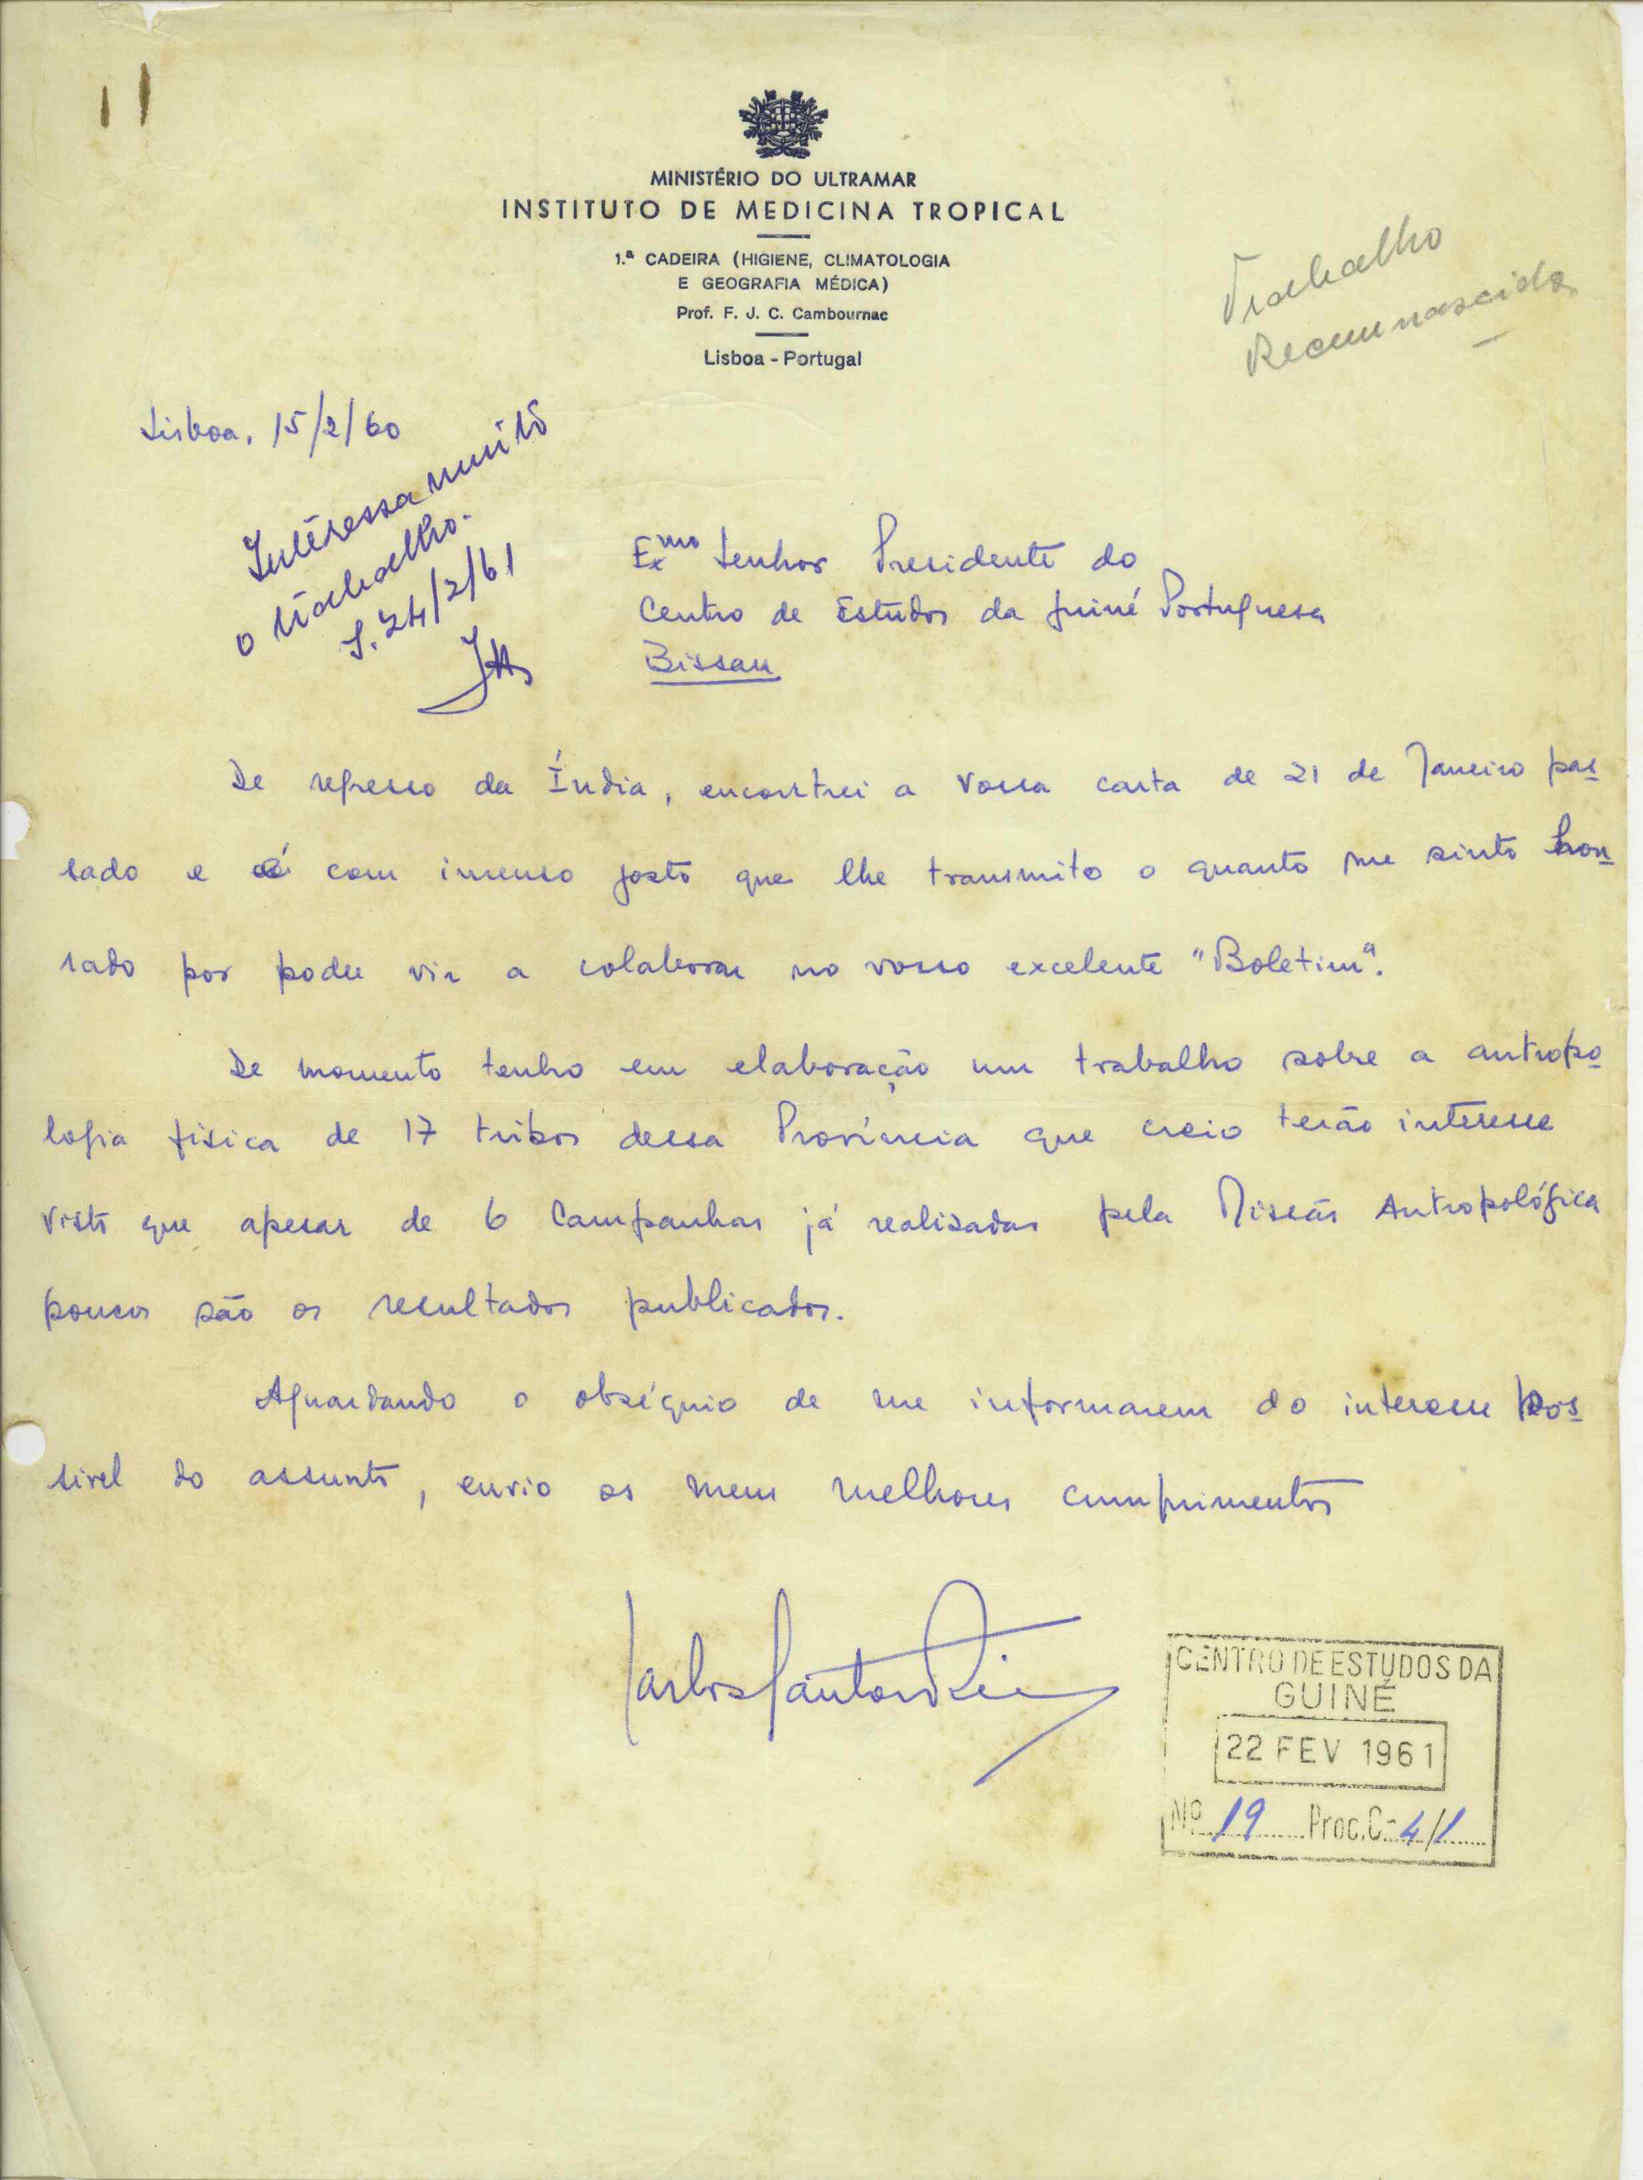 MINISTÉRIO DO ULTRAMAR
INSTITUTO DE MEDICINA TROPICAL
1.ª CADEIRA (HIGIENE, CLIMATOLOGIA
E GEOGRAFIA MÉDICA)
Prof. F. J. C. Cambournac
Lisboa - Portugal
Trabalho
Recem nascidos
Lisboa, 15/2/60
Interessa muito
o trabalho.
24/2/61
Exmo Senhor Presidente do
Centro de Estudos da Guiné Portuguesa
Bissau
De regresso da Índia, encontrei a Vossa carta de 21 de Janeiro pas
sado e é com imenso gosto que lhe transmito o quanto me sinto hon
rado por poder vir a colaborar no vosso excelente "Boletim".
De momento tenho em elaboração um trabalho sobre a antropo
logia fisica de 17 tribos dessa Província que creio terão interesse
visto que apesar de 6 Campanhas já realizadas pela Missão Antropológica
poucos são os resultados publicados.
Aguardando o obséquio de me informarem do interesse pos
sivel do assunto, envio os meus melhores cumprimentos
Carlos Santos Reis
CENTRO DE ESTUDOS DA
GUINÉ
22 FEV 1961
Nº 19 Proc.C-4/1